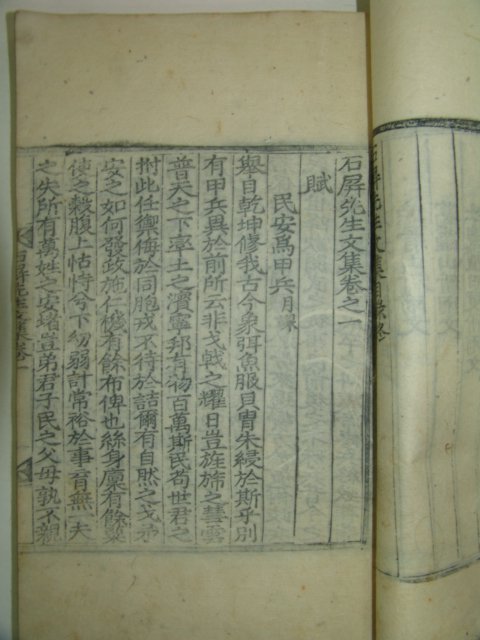 石屏先生文集目錄終
石屏先生文集卷之一
賦
民安爲甲兵月課
舉目乾坤修我古今象弭魚服貝冑朱綅於斯乎別
有甲兵異於前所云非戈戟之耀日豈旌旆之彗雲
普天之下率土之濱寧邦有物百萬斯民苟世君之
拊此任禦侮於同胞戎不待於詰爾有自然之戈矛
安之如何發政施仁機有餘布俾也絲身廩有餘粟
使之穀腹上怙恃兮下幼弱計常裕於事育無一夫
之失所有萬姓之安堵豈弟君子民之父母孰不親
石屏先生文集卷一